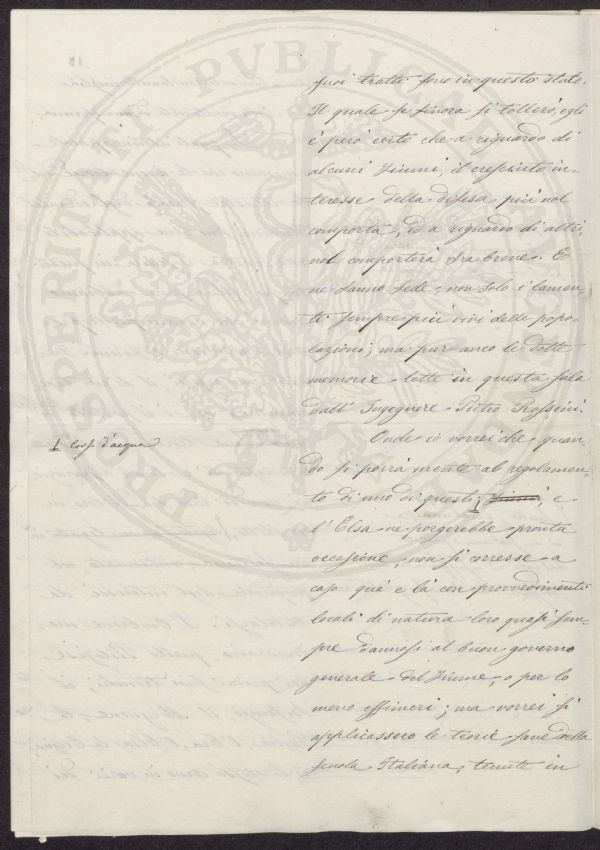 PROSPERITATI PVBLICAE AVGENDAE
suoi tratti sono in questo stato.
Il quale se sinora si tollerò, egli
è però certo che a riguardo di
alcuni fiumi, il cresciuto in-
teresse della difesa più nol
comporta, ed a riguardo di altri,
nol comporterà fra breve. E
ne fanno fede, non solo i lamen-
ti sempre più vivi delle popo-
lazioni; ma pur anco le dotte
memorie lette in questa sala
dall' Ingegnere Pietro Rossini.
Onde io vorrei che quan-
do si porrà mente al regolamen-
⊥ Corsi d'acqua
to di uno di questi ⊥ fiumi, e
l'Elsa ne porgerebbe pronta
occasione, non si corresse a
caso quà e là con provvedimenti
locali di natura loro quasi sem-
pre dannosi al buon governo
generale del fiume, o per lo
meno effimeri; ma vorrei si
applicassero le teorie sane della
scuola Italiana, tenute in